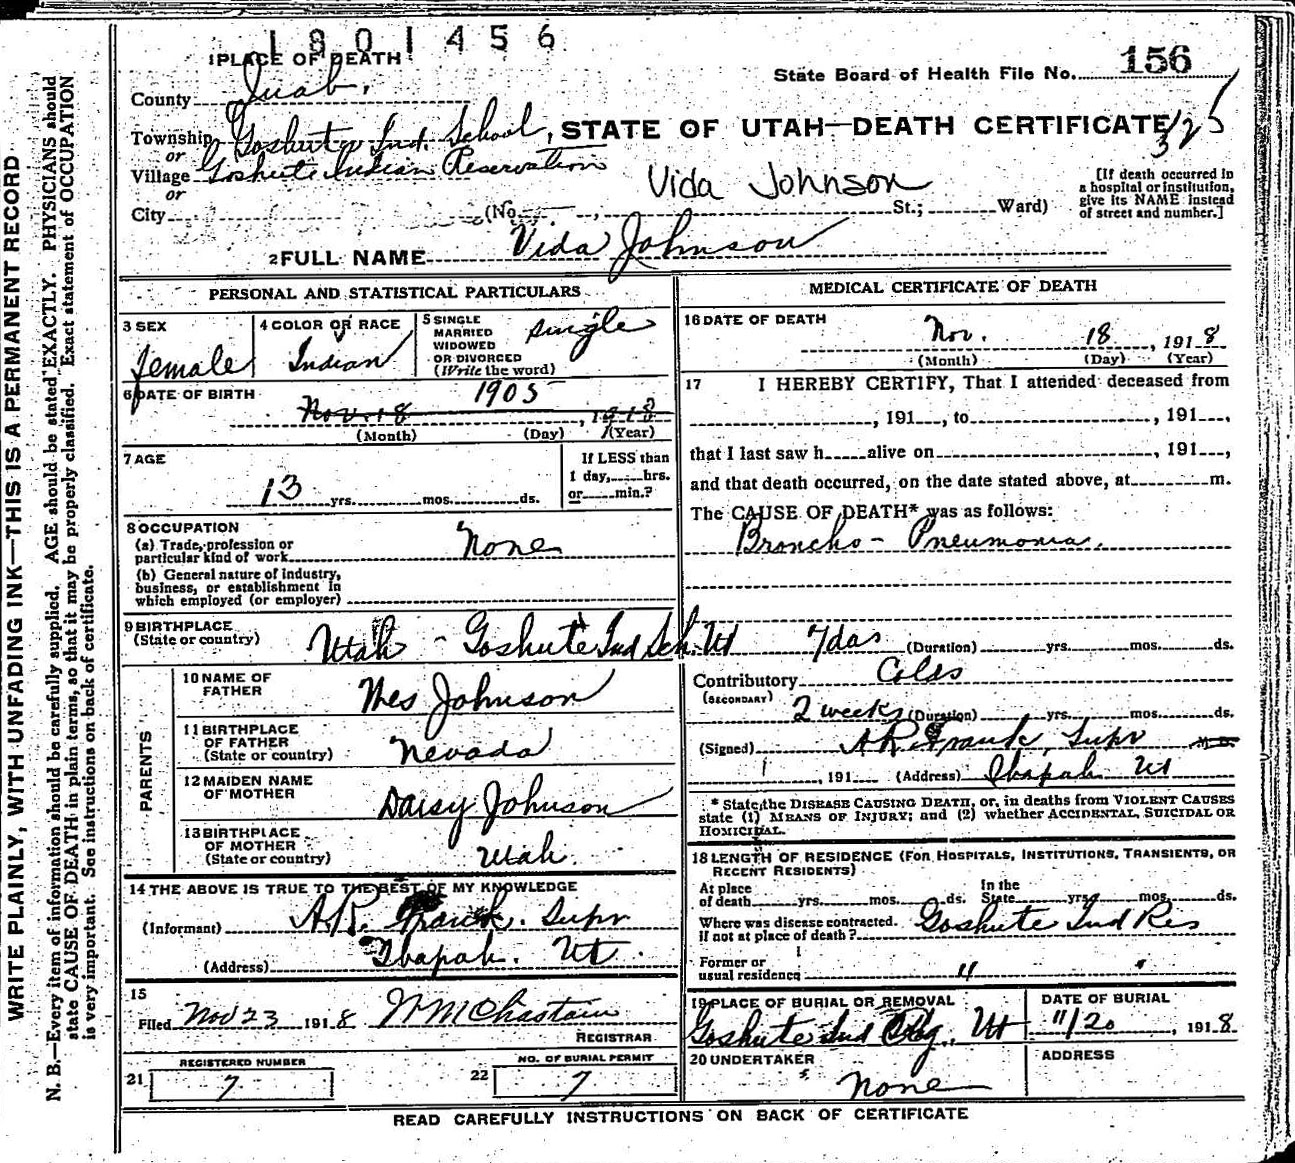 1801456
1 PLACE OF DEATH
State Board of Health File No. 156
County Juab,
Township Goshute Ind. School, STATE OF UTAH—DEATH CERTIFICATE
or
Village Goshute Indian Reservation
or
Vida Johnson
[If death occurred in a hospital or institution, give its NAME instead of street and number.]
City (No. St.; Ward)
2 FULL NAME Vida Johnson
PERSONAL AND STATISTICAL PARTICULARS
3 SEX
female
4 COLOR OR RACE
Indian
5 SINGLE MARRIED WIDOWED OR DIVORCED (Write the word)
single
6 DATE OF BIRTH
1905
Nov. 18, 1918
(Month) (Day) (Year)
7 AGE
13 yrs. mos. ds.
If LESS than
1 day, hrs.
or min.?
8 OCCUPATION
(a) Trade, profession or
particular kind of work None
(b) General nature of industry,
business, or establishment in
which employed (or employer)
9 BIRTHPLACE
(State or country) Utah - Goshute Ind Sch. Ut
PARENTS
10 NAME OF
FATHER Johnson
11 BIRTHPLACE
OF FATHER
(State or country) Nevada
12 MAIDEN NAME
OF MOTHER Daisy Johnson
13 BIRTHPLACE
OF MOTHER
(State or country) Utah
14 THE ABOVE IS TRUE TO THE BEST OF MY KNOWLEDGE
(Informant) A.R. Franck. Supr
(Address) Ibapah. Ut.
15
Filed Nov 23 1918 W M Chastain
REGISTRAR
REGISTERED NUMBER
21 7
NO. OF BURIAL PERMIT
22 7
MEDICAL CERTIFICATE OF DEATH
16 DATE OF DEATH
Nov. 18, 1918
(Month) (Day) (Year)
17 I HEREBY CERTIFY, That I attended deceased from
, 191 , to , 191 ,
that I last saw h alive on , 191 ,
and that death occurred, on the date stated above, at m.
The CAUSE OF DEATH* was as follows:
Broncho-Pneumonia.
7 das (Duration) yrs. mos. ds.
Contributory Colds
(SECONDARY)
2 weeks (Duration) yrs. mos. ds.
(Signed) A R Franck, Supr M.D.
, 191 (Address) Ibapah Ut
* State the DISEASE CAUSING DEATH, or, in deaths from VIOLENT CAUSES
state (1) MEANS OF INJURY; and (2) whether ACCIDENTAL, SUICIDAL OR
HOMICIDAL.
18 LENGTH OF RESIDENCE (FOR HOSPITALS, INSTITUTIONS, TRANSIENTS, OR
RECENT RESIDENTS)
At place
of death yrs. mos. ds.
In the
State yrs. mos. ds.
Where was disease contracted.
if not at place of death? Goshute Ind Res
Former or
usual residence " "
19 PLACE OF BURIAL OR REMOVAL
Goshute Ind Ut
DATE OF BURIAL
11/20, 1918
20 UNDERTAKER
None
ADDRESS
READ CAREFULLY INSTRUCTIONS ON BACK OF CERTIFICATE
WRITE PLAINLY, WITH UNFADING INK—THIS IS A PERMANENT RECORD
N. B.—Every item of information should be carefully supplied. AGE should be stated EXACTLY. PHYSICIANS should
state CAUSE OF DEATH in plain terms, so that it may be properly classified. Exact statement of OCCUPATION
is very important. See instructions on back of certificate.